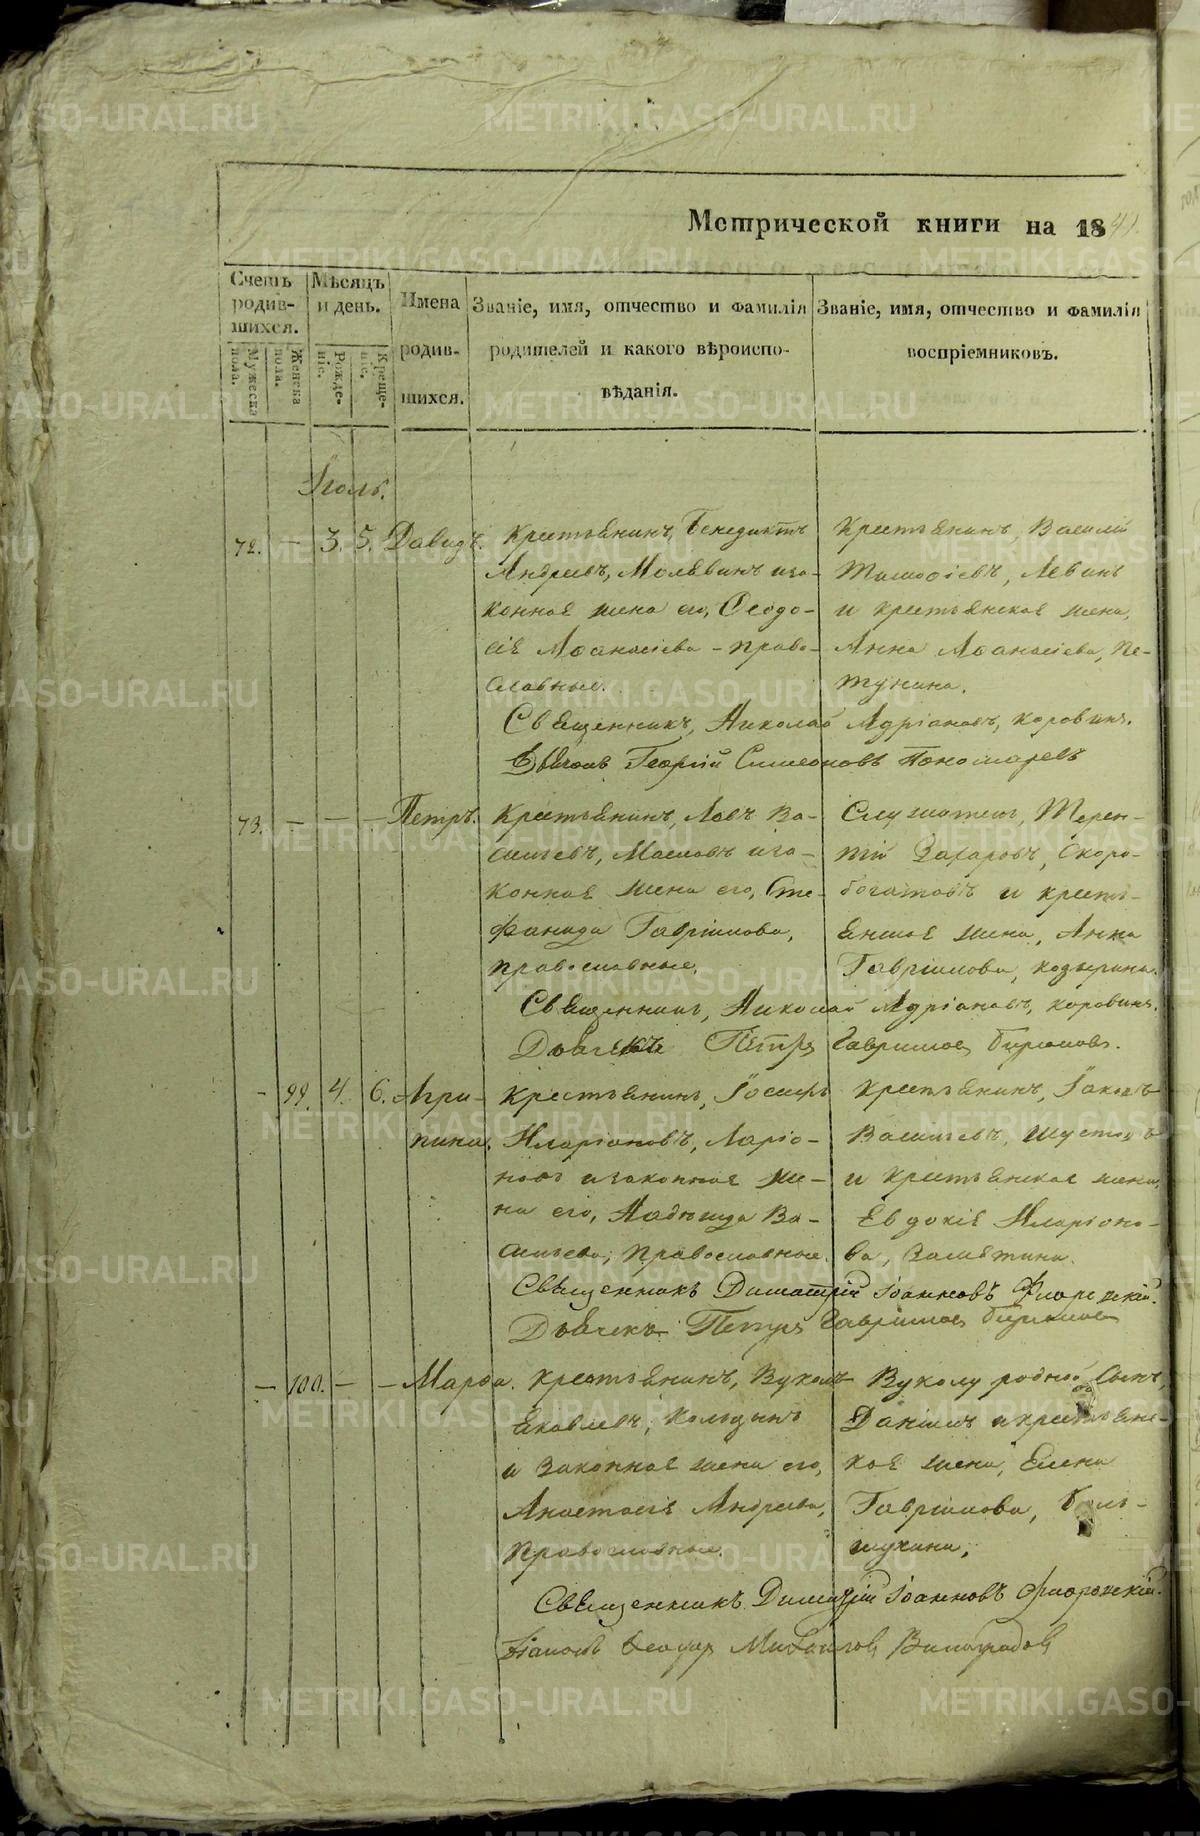 Метрической книги на 1841.
Счетъ родив-шихся.
Мужеска пола.
Женска пола.
Мѣсяцъ и день.
Рожде-ніе.
Креще-ніе.
Имена родив-шихся.
Званіе, имя, отчество и фамилія
родителей и какого вѣроиспо-
вѣданія.
Званіе, имя, отчество и фамилія
воспріемниковъ.
Іюль.
72. — 3. 5. Давидъ.
Крестьянинъ, Бенедиктъ
Андреевъ, Молявинъ и за-
конная жена его, Ѳеодо-
сія Аѳанасіева - право-
славные.
Крестьянинъ, Василій
Тимоѳіевъ, Левинъ
и крестьянская жена,
Анна Аѳанасіева, Пе-
тунина.
Священникъ, Николай Адріановъ, Коровинъ.
Дьячокъ Георгій Симеоновъ Пономаревъ
73. — — — Петръ.
Крестьянинъ, Левъ Ва-
сильевъ, Масловъ и за-
конная жена его, Сте-
фанида Гавріилова,
православные.
Служитель, Терен-
тій Захаровъ, Скоро-
богатовъ и кресть-
янская жена, Анна
Гавріилова, Козырина.
Священникъ, Николай Адріановъ, Коровинъ.
Дьячекъ Петръ Гавриловъ Бирюковъ.
- 99. 4. 6. Агри-
пина.
Крестьянинъ, Іосифъ
Иларіоновъ, Ларіо-
новъ и законная же-
на его, Надежда Ва-
сильева, православные.
Крестьянинъ, Іаковъ
Васильевъ, Шустовъ
и крестьянская жена,
Евдокія Иларіоно-
ва, Замятина.
Священникъ Димитрій Іоанновъ Флоровскій.
Дьячекъ Петръ Гавриловъ Бирюковъ
— 100. — — Марѳа.
Крестьянинъ, Вуколъ
Яковлевъ, Кользинъ
и законная жена его,
Анастасія Андреева,
православные.
Вуколу родной сынъ,
Даніилъ и крестьянс-
кая жена, Елена
Гавріилова, Боль-
шухина,
Священникъ Димитрій Іоанновъ Флоровскій.
Діаконъ Ѳеодоръ Михаиловъ Виноградовъ
METRIKI.GASO-URAL.RU